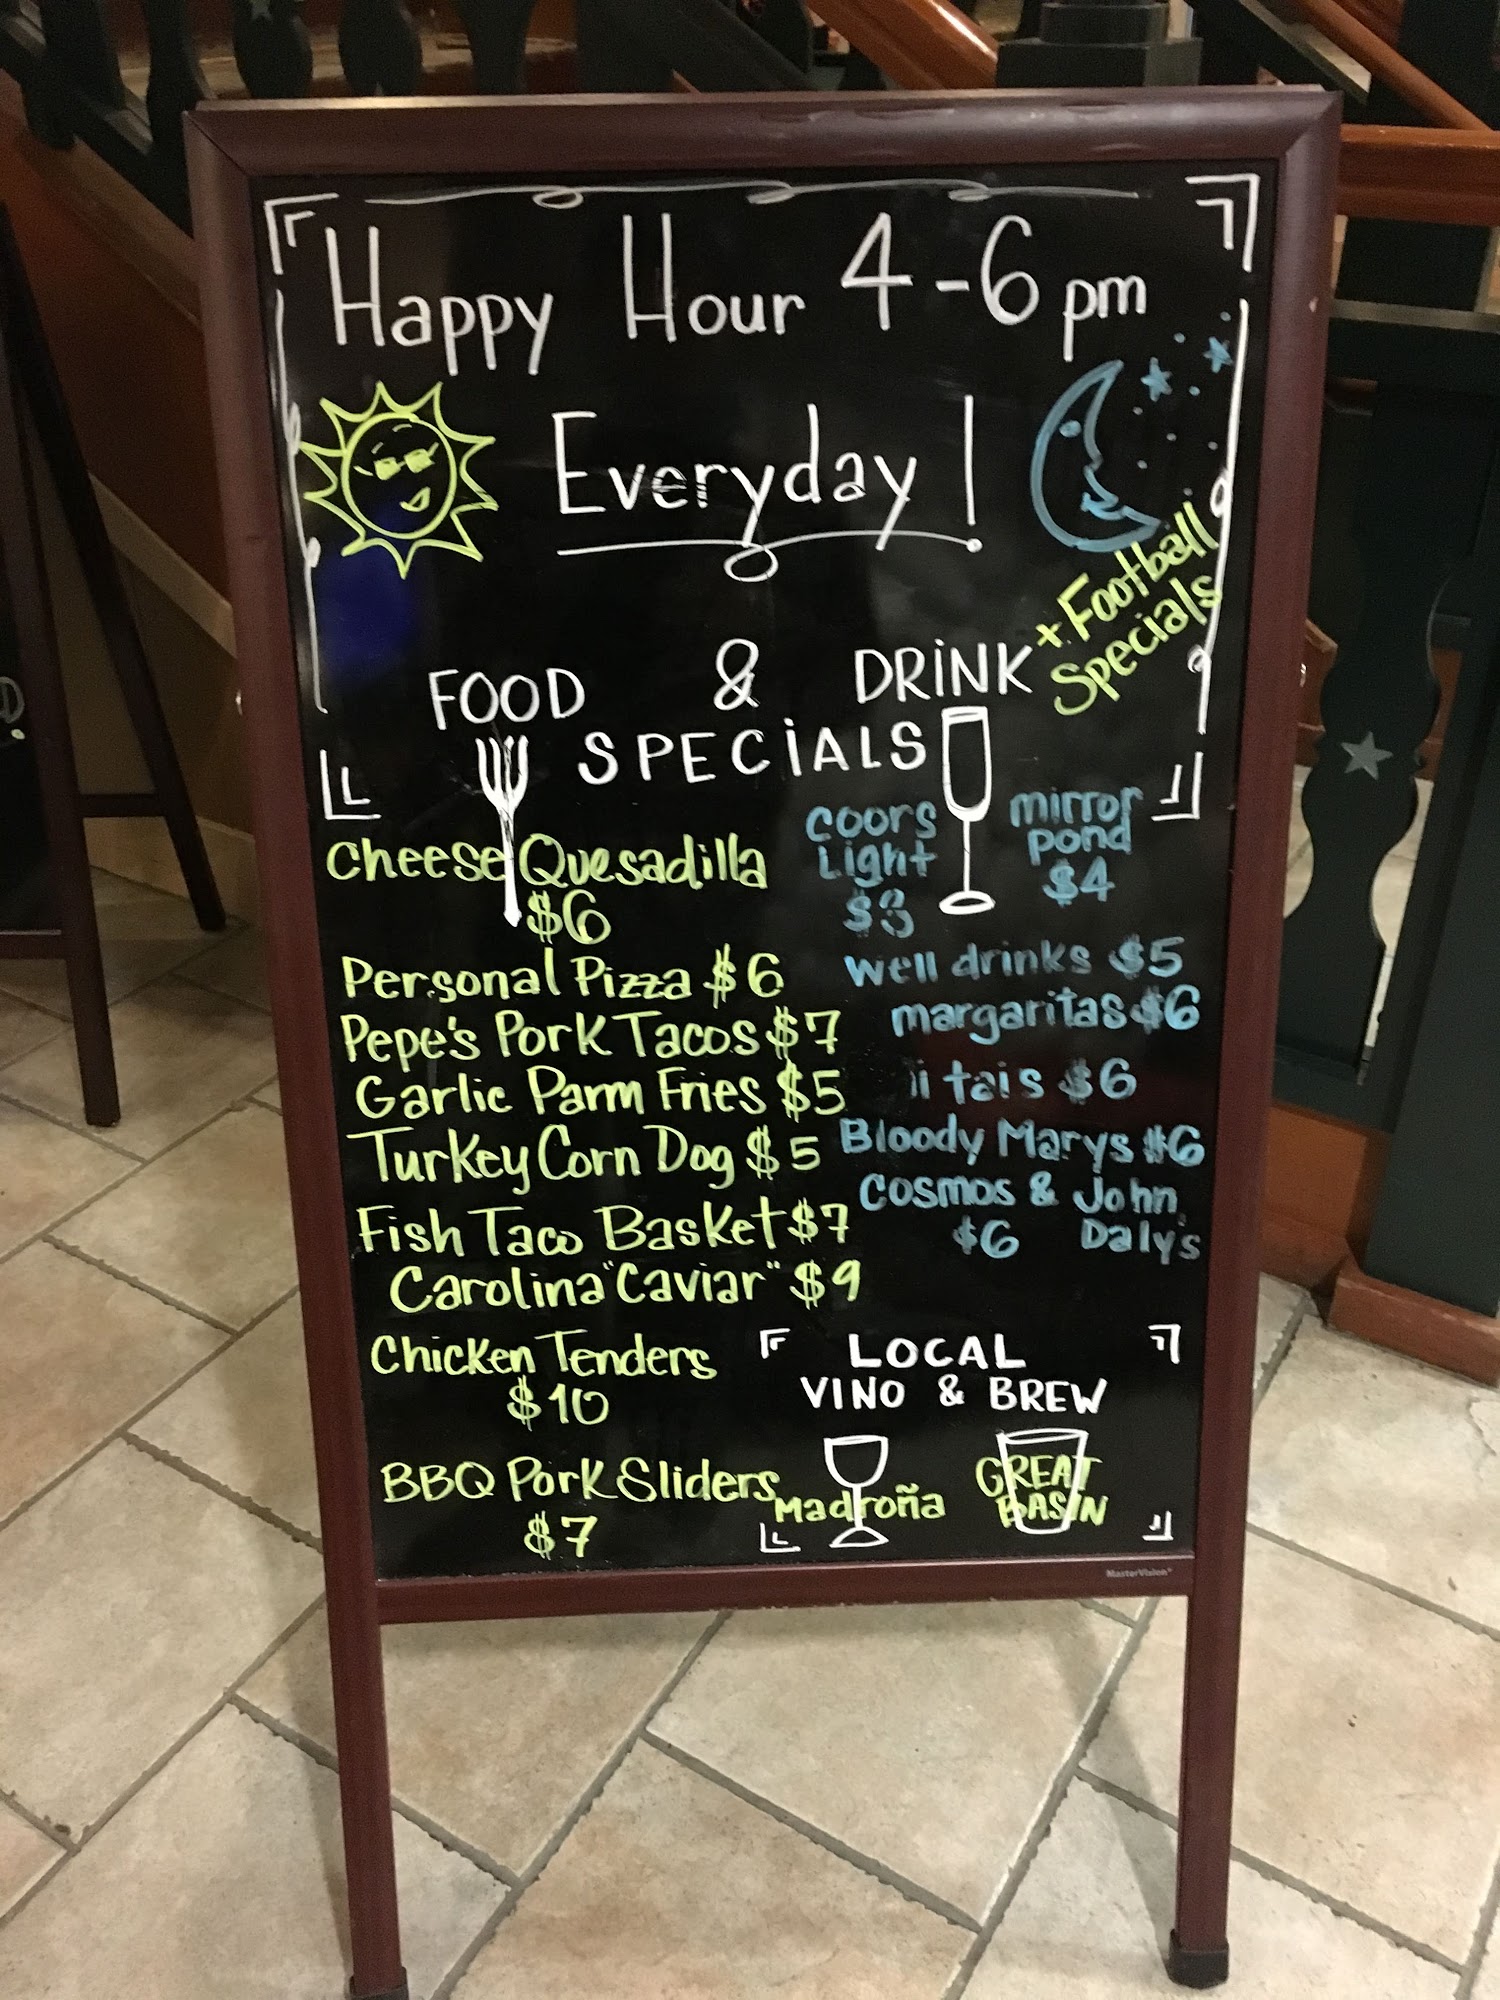 Happy Hour 4-6 pm
Everyday!
+ Football
Specials
FOOD & DRINK
SPECIALS
Cheese Quesadilla
$6
Personal Pizza $6
Pepe's Pork Tacos $7
Garlic Parm Fries $5
Turkey Corn Dog $5
Fish Taco Basket $7
Carolina "Caviar" $9
Chicken Tenders
$10
BBQ Pork Sliders
$7
Coors
Light
mirror
pond
$4
well drinks $5
margaritas $6
i tais $6
Bloody Marys $6
Cosmos & John
$6 Daly's
LOCAL
VINO & BREW
Madroña
GREAT
BASIN
MasterVision